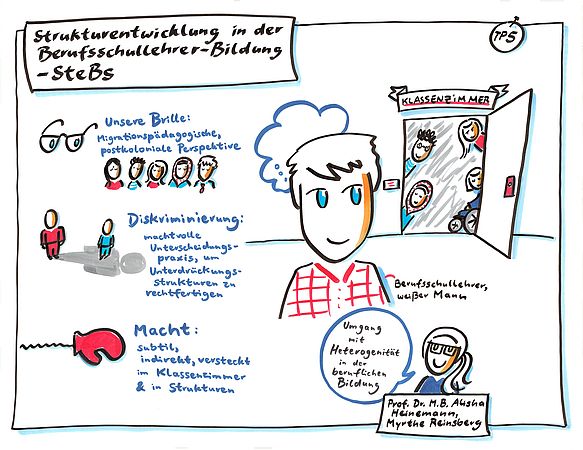 Strukturentwicklung in der
Berufsschullehrer-Bildung
-SteBs
TP5
Unsere Brille:
Migrationspädagogische,
postkoloniale Perspektive
KLASSENZIMMER
Diskriminierung:
machtvolle
Unterscheidungs-
praxis, um
Unterdrückungs-
strukturen zu
rechtfertigen
Berufsschullehrer,
weißer Mann
Macht:
subtil,
indirekt, versteckt
im Klassenzimmer
& in Strukturen
Umgang
mit
Heterogenität
in der
beruflichen
Bildung
Prof. Dr. M.B. Alisha
Heinemann,
Myrthe Reinsberg